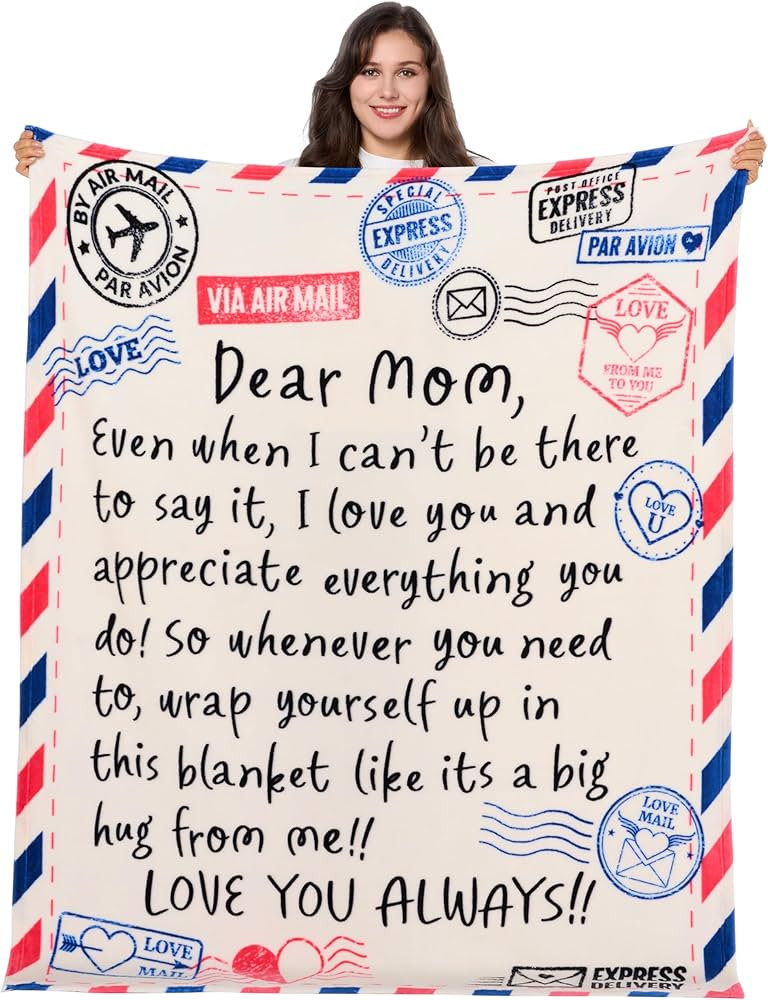 BY AIR MAIL
PAR AVION
SPECIAL
EXPRESS
DELIVERY
POST OFFICE
EXPRESS
DELIVERY
PAR AVION
VIA AIR MAIL
LOVE
FROM ME
TO YOU
LOVE
Dear Mom,
Even when I can't be there
to say it, I love you and
LOVE
U
appreciate everything you
do! So whenever you need
to, wrap yourself up in
this blanket like its a big
hug from me!!
LOVE
MAIL
LOVE YOU ALWAYS!!
LOVE
MAIL
EXPRESS
DELIVERY